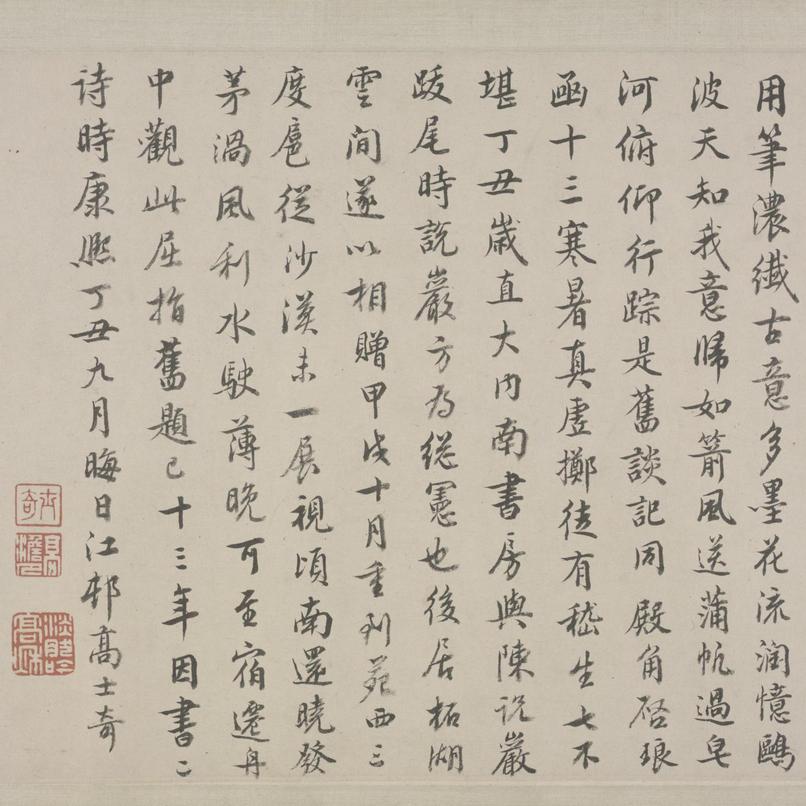 用筆濃纖古意多墨花流润憶鷗
波天知我意歸如箭風送蒲帆過皂
河俯仰行踪是舊談記同殿角啓琅
函十三寒暑真虛擲徒有嵇生七不
堪丁丑歲直大内南書房與陳说巖
跋尾時説巖方為緫憲也後居柘湖
雲间遂以相贈甲戌十月重到苑西三
度扈從沙漠未一展視頃南還曉發
茅渦風利水駛薄晚可至宿遷舟
中觀此屈指舊題已十三年因書二
诗時康熈丁丑九月晦日江邨高士奇